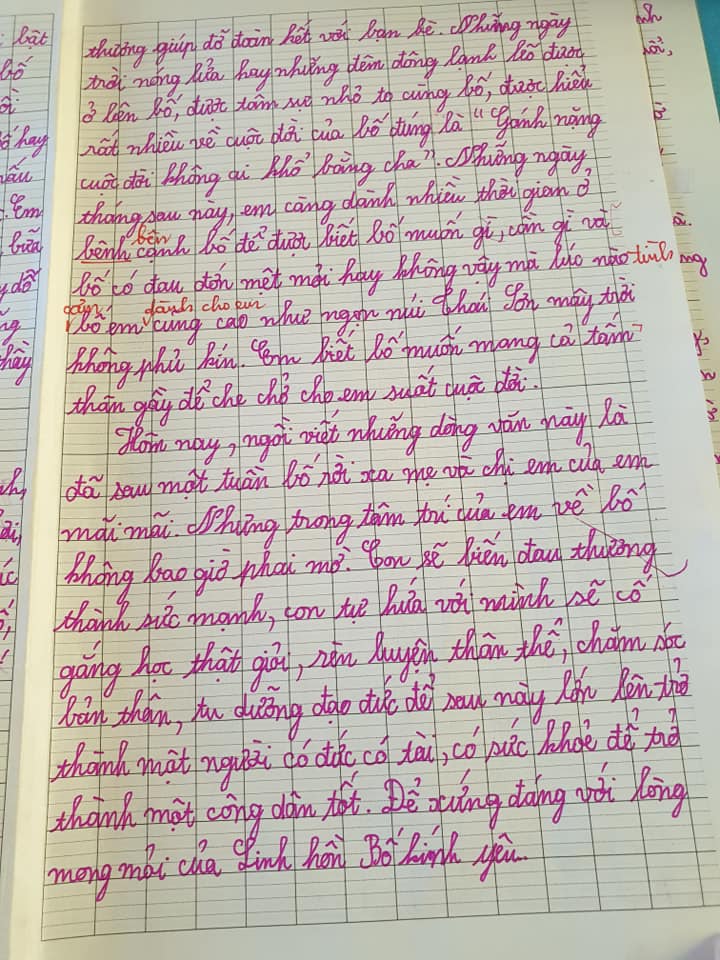 thương giúp đỡ đoàn hết với bạn bè. Những ngày
trời nóng lửa hay những đêm đông lạnh lẽo được
ở bên bố, được tâm sự nhỏ to cùng bố, được hiểu
rất nhiều về cuộc đời của bố đúng là "Gánh nặng
cuộc đời không ai khổ bằng cha". Những ngày
tháng sau này, em càng dành nhiều thời gian ở
bên
bênh cạnh bố để được biết bố muốn gì, cần gì và
bố có đau đớn mệt mỏi hay không vậy mà lúc nào tình
dành cho em
bố em cũng cao như ngọn núi Thái Sơn mây trời
không phủ kín. Em biết bố muốn mang cả tấm
thân gầy để che chở cho em suất cuộc đời.
Hôm nay, ngồi viết những dòng văn này là
đã sau một tuần bố rời xa mẹ và chị em của em
mãi mãi. Nhưng trong tâm trí của em về bố
không bao giờ phai mờ. Con sẽ biến đau thương
thành sức mạnh, con tự hứa với mình sẽ cố
gắng học thật giỏi, rèn luyện thân thể, chăm sóc
bản thân, tu dưỡng đạo đức để sau này lớn lên trở
thành một người có đức có tài, có sức khoẻ để trở
thành một công dân tốt. Để xứng đáng với lòng
mong mỏi của Linh hồn Bố kính yêu.